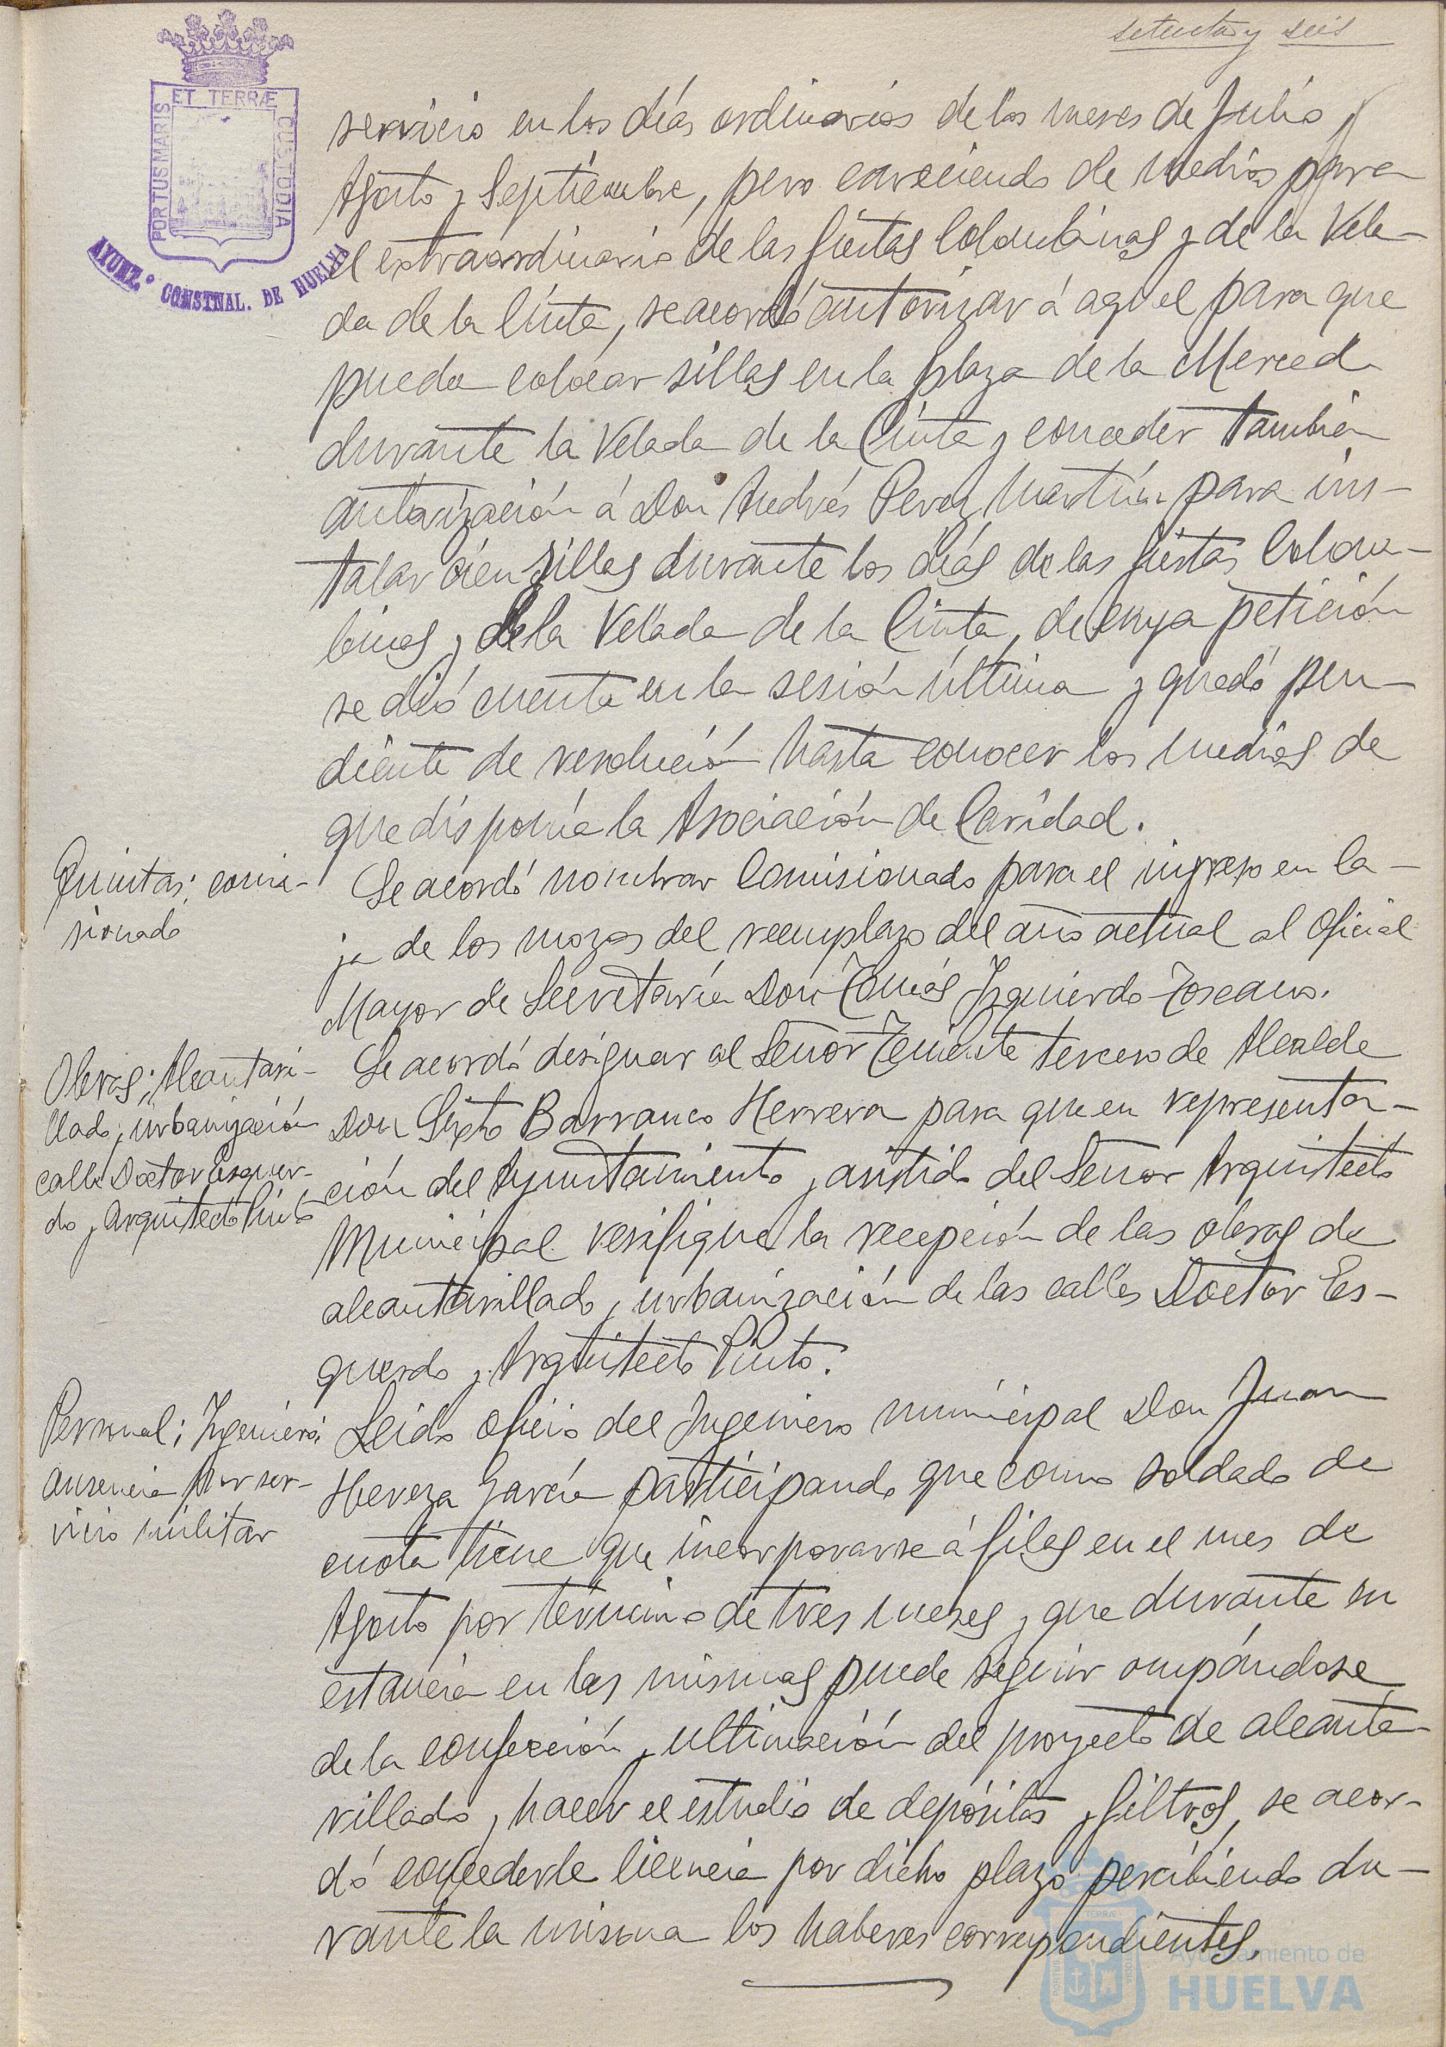 setenta y seis
PORTUS MARIS
ET TERRÆ
CUSTODIA
AYUNT.º CONSTNAL. DE HUELVA
servicio en los días ordinarios de los meses de Julio,
Agosto y Septiembre, pero careciendo de medios para
el extraordinario de las fiestas Colombinas y de la Vela-
da de la Cinta, se acordó autorizar á aquel para que
pueda colocar sillas en la plaza de la Merced
durante la Velada de la Cinta y conceder también
autorización á Don Andrés Perez Martín para ins-
talar cien sillas durante los días de las fiestas Colom-
binas y de la Velada de la Cinta, de cuya petición
se dió cuenta en la sesión última y quedó pen-
diente de resolución hasta conocer los medios de
que disponía la Asociación de Caridad.
Quintas; comi-
sionado
Se acordó nombrar Comisionado para el ingreso en Ca-
ja de los mozos del reemplazo del año actual al Oficial
Mayor de Secretaría Don Tomás Izquierdo Toscano.
Obras; Alcantari-
llado y urbanización
calle Doctor Esquer-
do y Arquitecto Pinto
Se acordó designar al Señor Teniente tercero de Alcalde
Don Sixto Barranco Herrera para que en representa-
ción del Ayuntamiento y asistido del Señor Arquitecto
Municipal verifique la recepción de las obras de
alcantarillado y urbanización de las calles Doctor Es-
querdo y Arquitecto Pinto.
Personal; Ingeniero;
ausencia por ser-
vicio militar
Leido oficio del Ingeniero municipal Don Juan
Hereza García participando que como soldado de
cuota tiene que incorporarse á filas en el mes de
Agosto por término de tres meses y que durante su
estancia en las mismas puede seguir ocupándose
de la confección y ultimación del proyecto de alcanta-
rillado y hacer el estudio de depósitos y filtros, se acor-
dó concederle licencia por dicho plazo percibiendo du-
rante la misma los haberes correspondientes.
Ayuntamiento de
HUELVA